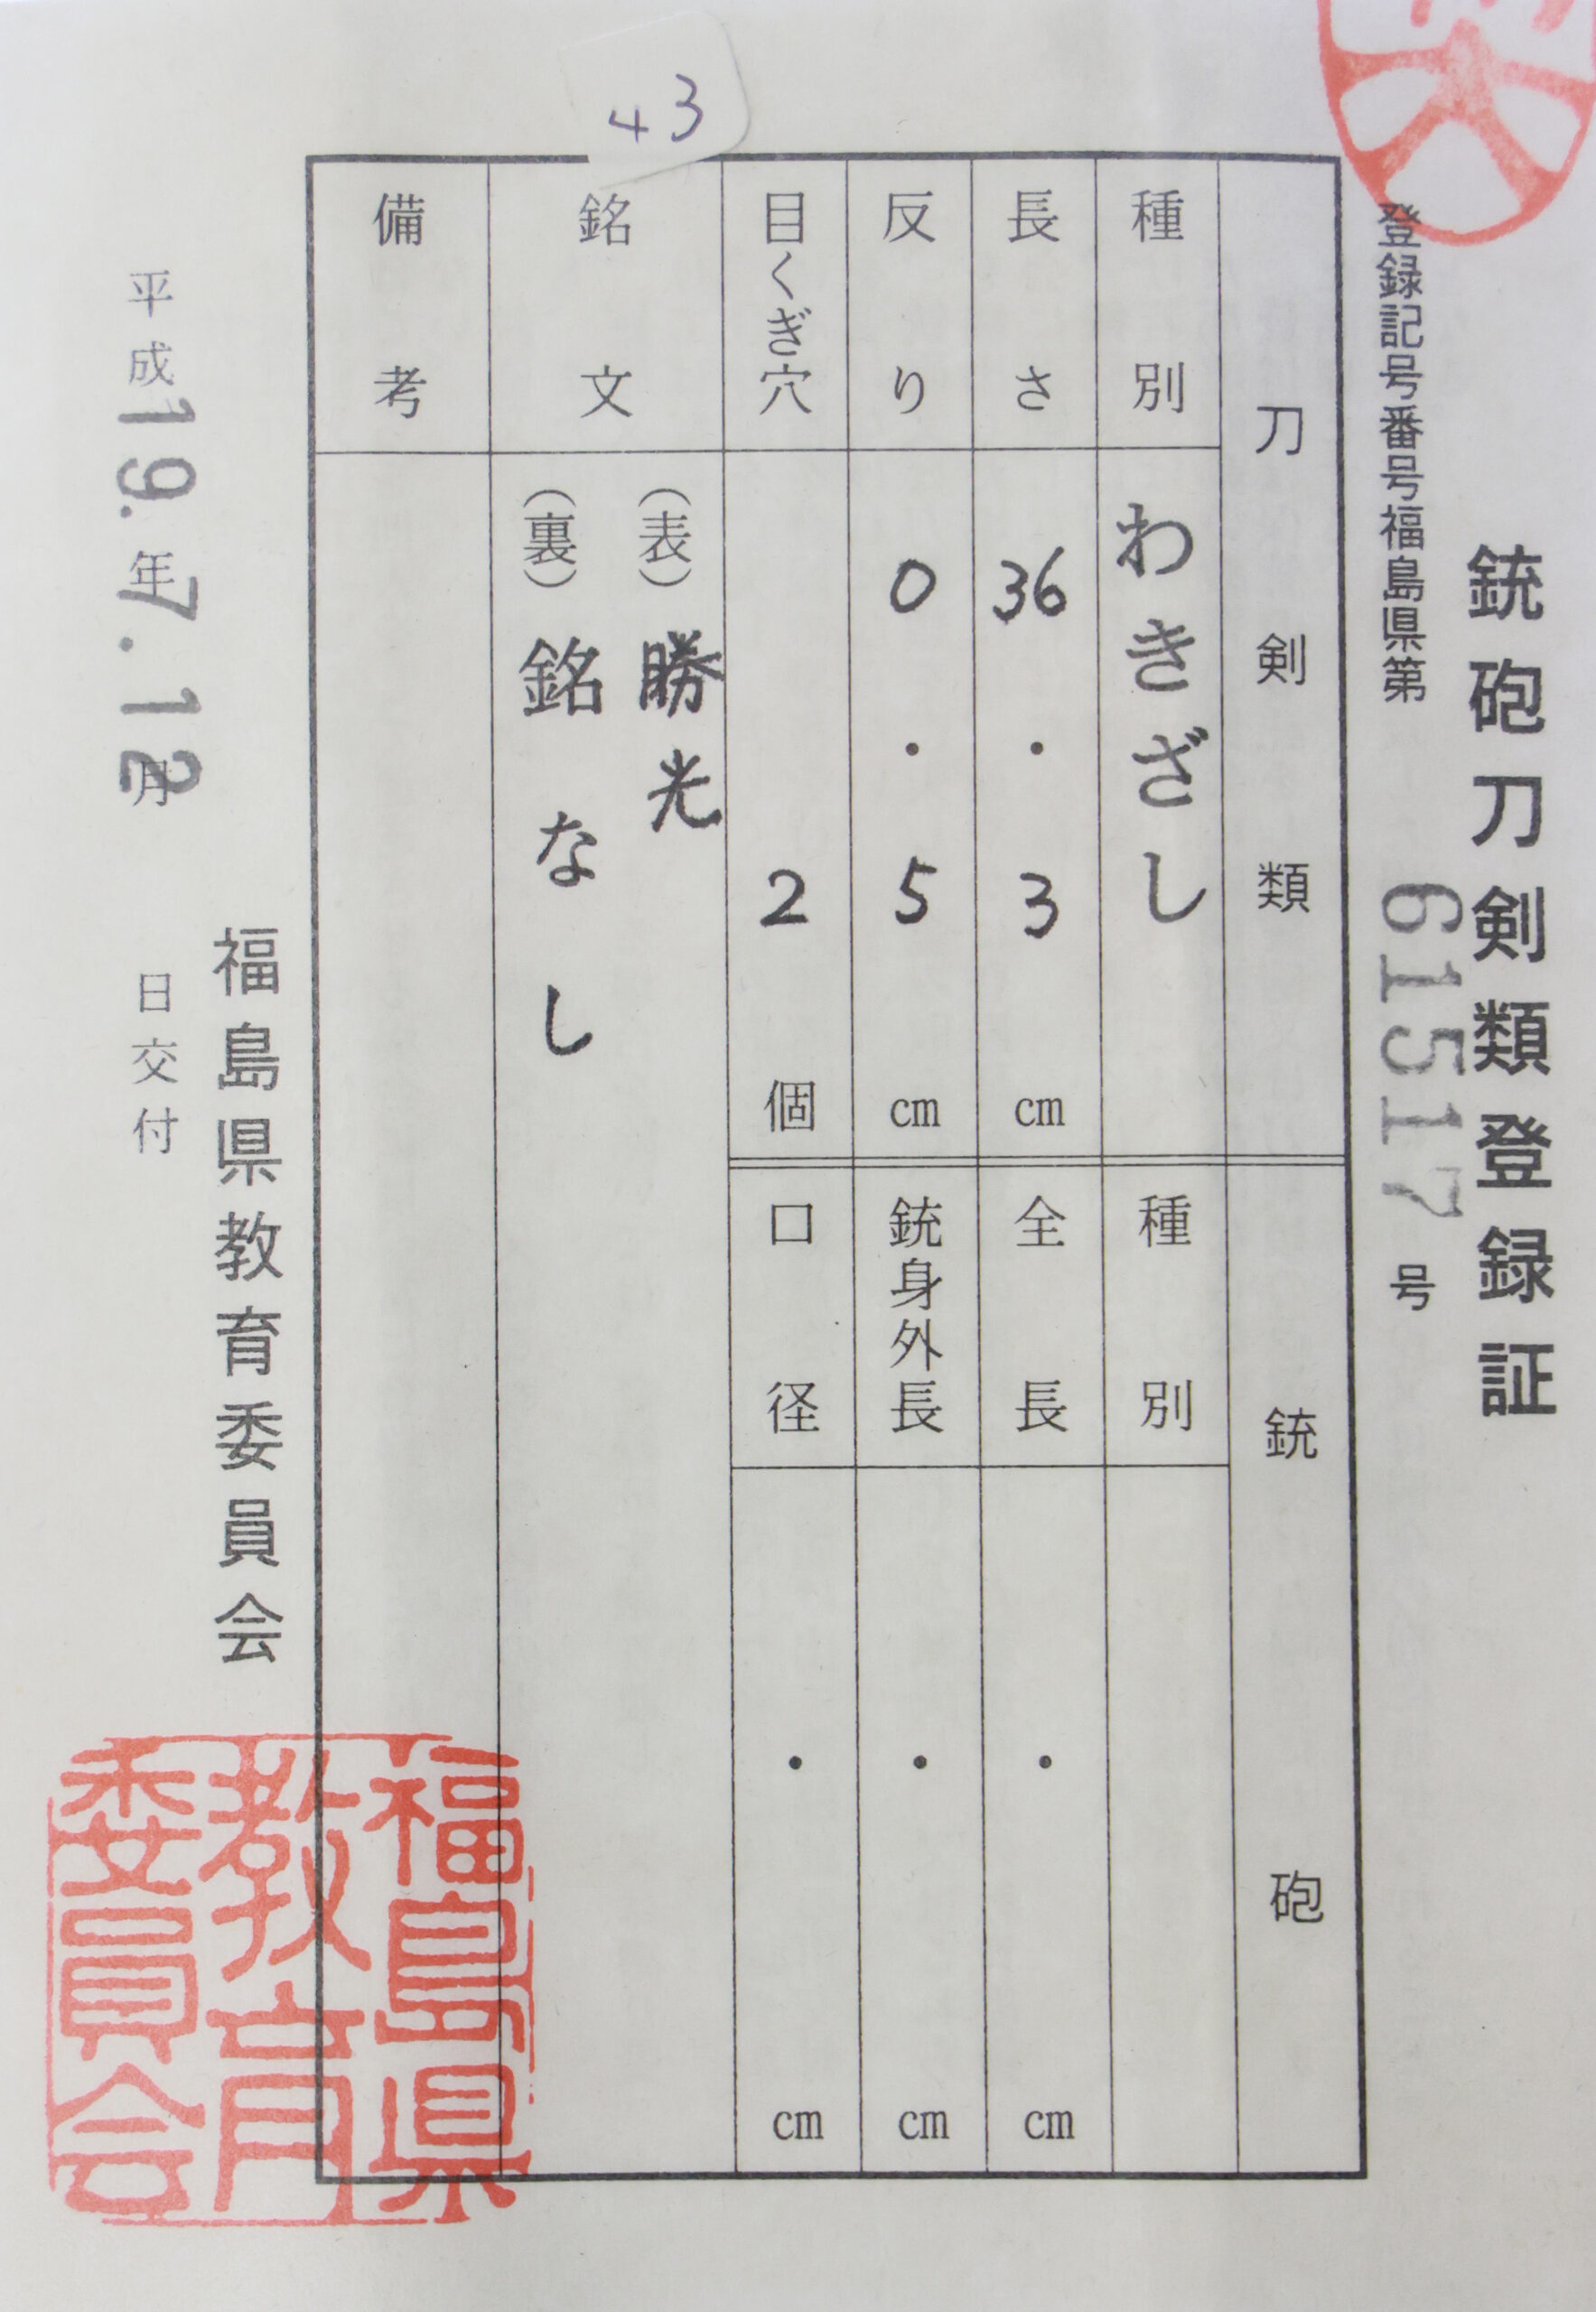 銃砲刀剣類登録証
登録記号番号福島県第 61517 号
刀剣類
種別 わきざし
長さ 36・3 cm
反り 0・5 cm
目くぎ穴 2 個
銃砲
種別
全長 ・ cm
銃身外長 ・ cm
口径 ・ cm
銘文
(表) 勝光
(裏) 銘なし
備考
福島県教育委員会
平成19.年7.12月 日交付
福島県
教育
委員会
43